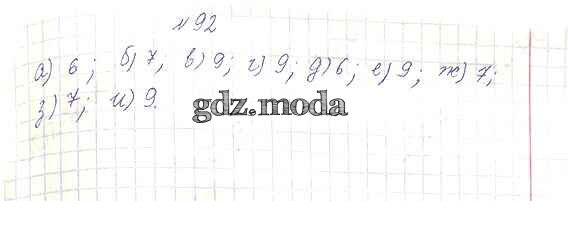 №92
а) 6; б) 7, в) 9; г) 9; д) 6; е) 9; ж) 7;
з) 7; и) 9.
gdz.moda